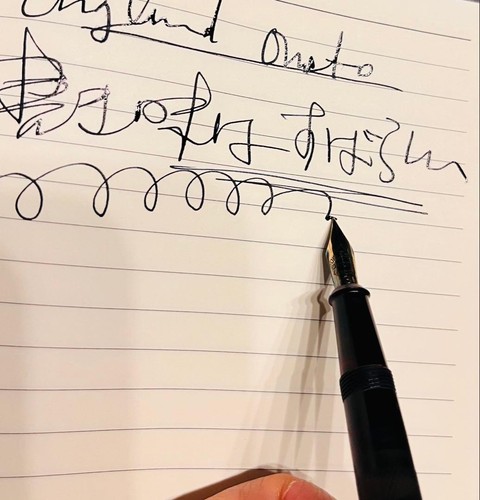 England Onoto
書き味は すばらしい